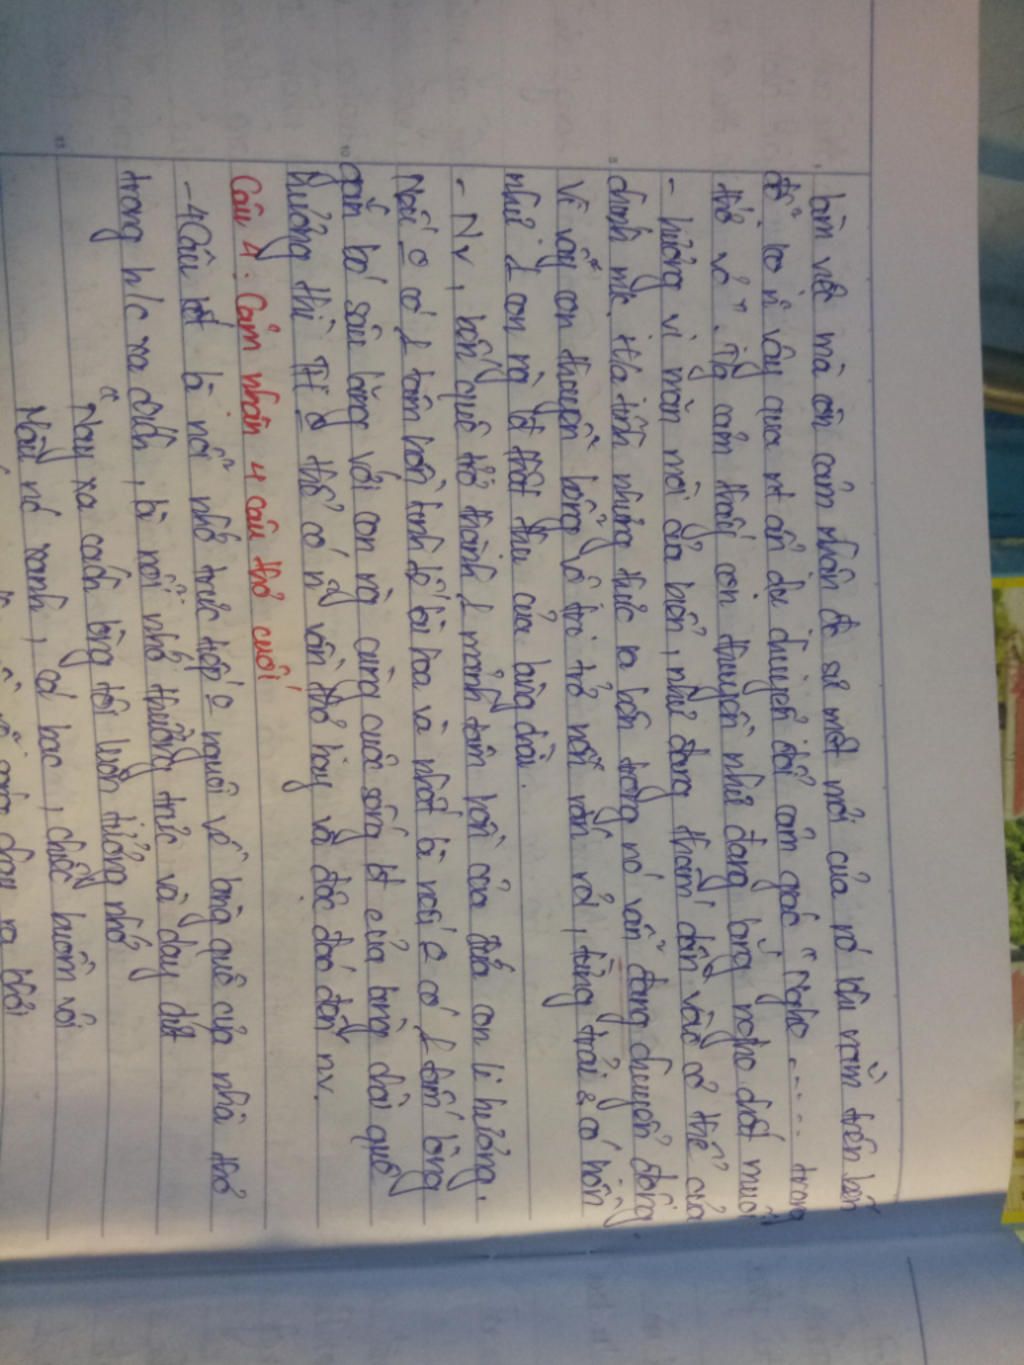 làm việc mà còn cảm nhận đc sự mệt mỏi của nó khi nằm trên bến
đỗ bởi vậy qua nt ẩn dụ chuyển đổi cảm giác "Nghe ..... trong
thớ vỏ". Ta cảm thấy con thuyền như đang lắng nghe chất muối
- hương vị mặn mòi của biển, như đang thấm dần vào cơ thể của
chính mk. Ha tĩnh nhưng thực ra bên trong nó vẫn đang chuyển động.
Vì vậy con thuyền bỗng vô tri trở nên rắn rỏi, từng trải & có hồn
như 1 con ng lđ thật thụ của làng chài.
- Nv, bến quê trở thành 1 mảnh tâm hồn của đứa con li hương.
Nếu o có 1 tâm hồn tinh tế tài hoa và nhất là nếu o có 1 tấm lòng
gắn bó sâu lặng với con ng cùng cuộc sống lđ của làng chài quê
hương thì TH o thể có n vần thơ hay và độc đáo đến nv.
Câu 4: Cảm nhận 4 câu thơ cuối
- 4 Câu kết là nỗi nhớ trực tiếp o nguôi về làng quê của nhà thơ
trong h/c xa cách, là nỗi nhớ thường trực và day dứt
"Nay xa cách lòng tôi luôn tưởng nhớ
Màu nước xanh, cá bạc, chiếc buồm vôi
chạy ra khơi